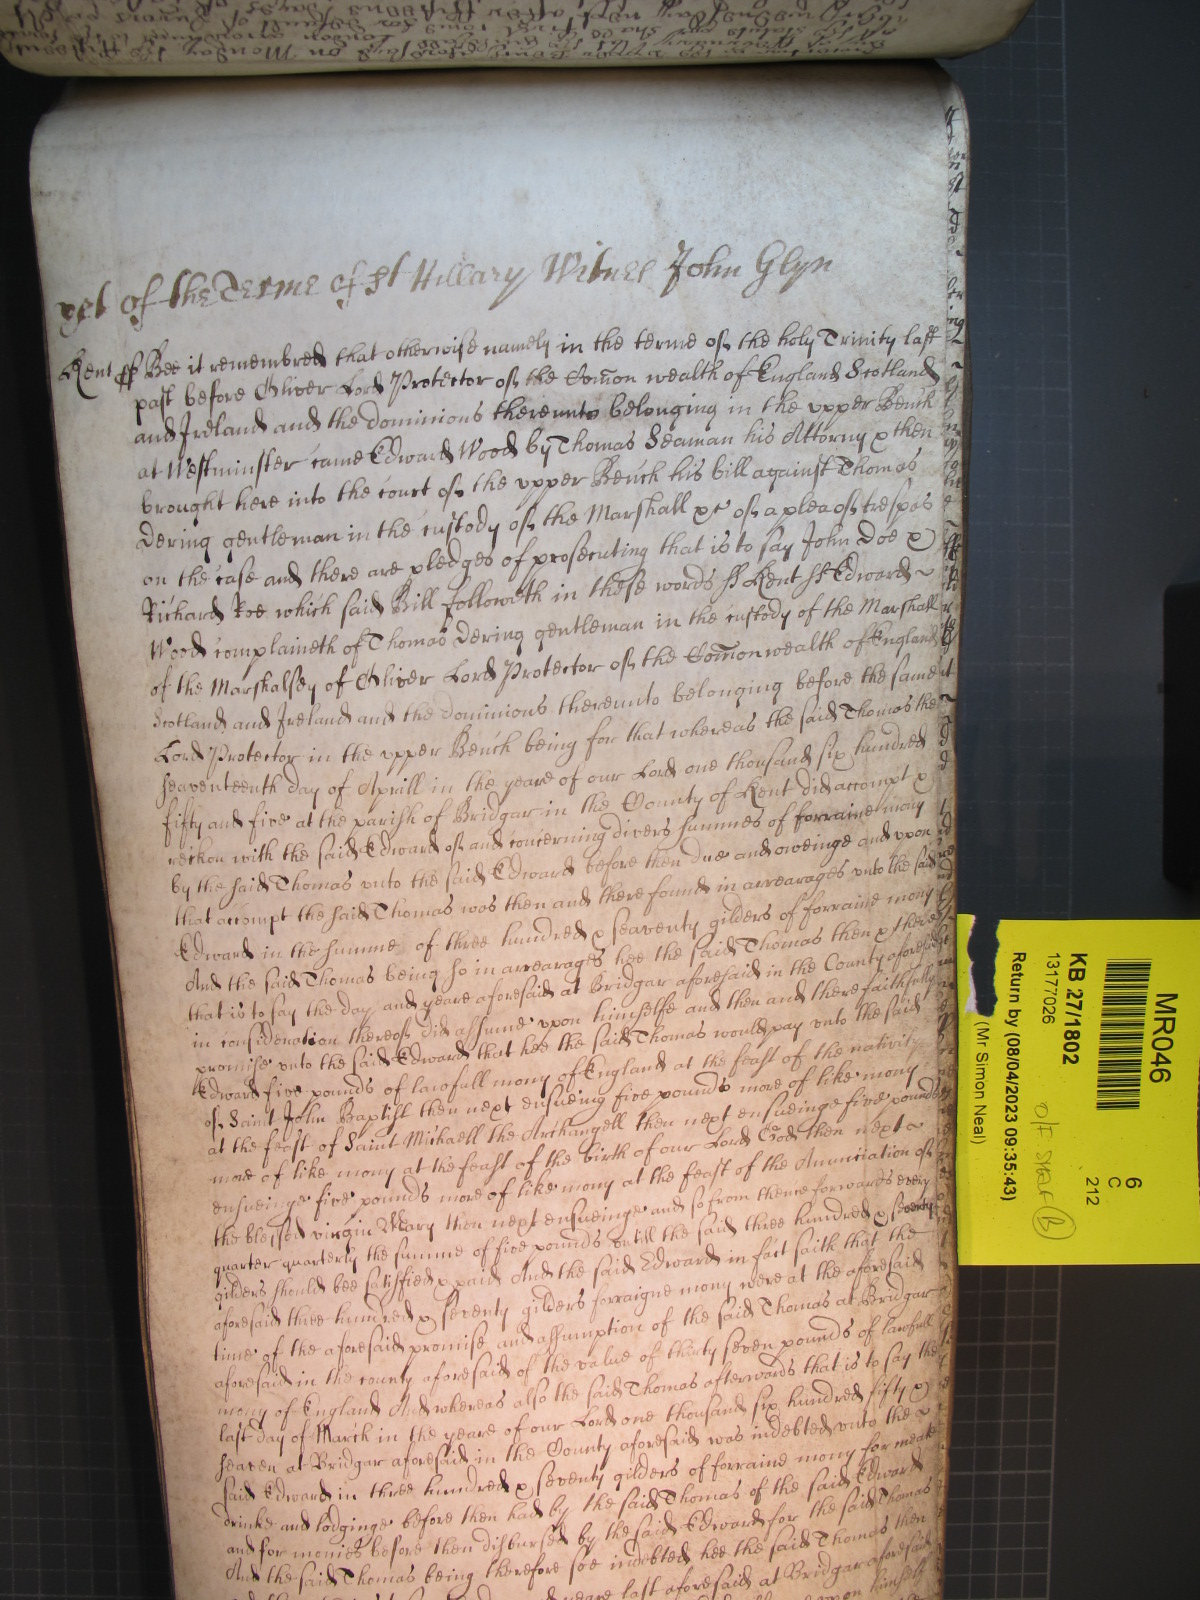 yet of the Terme of St Hillary Witnes John Glyn
Kent ss Bee it remembred that otherwise namely in the terme of the holy Trinity last
past before Oliver Lord Protector of the Comon wealth of England Scotland
and Ireland and the dominions thereunto belonging in the upper Bench
at Westminster came Edward Wood by Thomas Seaman his Attorny & then
brought here into the court of the upper Bench his bill against Thomas
Dering gentleman in the custody of the Marshall &c of a plea of trespas
on the case and there are pledges of prosecuting that is to say John Doe &
Richard Roe which said Bill followeth in these words ss Kent ss Edward
Wood complaineth of Thomas Dering gentleman in the custody of the Marshall
of the Marshalsey of Oliver Lord Protector of the Comonwealth of England
Scotland and Ireland and the dominions thereunto belonging before the same
Lord Protector in the upper Bench being for that whereas the said Thomas the
seaventeenth day of Aprill in the yeare of our Lord one thousand six hundred
fifty and five at the parish of Bridgar in the County of Kent did accompt &
reckon with the said Edward of and concerning divers summes of forraine mony
by the said Thomas unto the said Edward before then due and oweinge and upon
that accompt the said Thomas was then and there found in arrearages unto the said
Edward in the summe of three hundred & seaventy gilders of forraine mony
And the said Thomas being so in arrearages hee the said Thomas then & there
that is to say the day and yeare aforesaid at Bridgar aforesaid in the County aforesaid
in consideration thereof did assume upon himselfe and then and there faithfully
promise unto the said Edward that hee the said Thomas would pay unto the said
Edward five pounds of lawfull mony of England at the feast of the nativity
of Saint John Baptist then next ensueing five pounds more of like mony
at the feast of Saint Michaell the Archangell then next ensueinge five pounds
more of like mony at the feast of the birth of our Lord God then next
ensueinge five pounds more of like mony at the feast of the Anunciation of
the blessed virgin Mary then next ensueinge and so from thence forwards every
quarter quarterly the summe of five pounds untill the said three hundred & seventy
gilders should bee satisfied & paid And the said Edward in fact saith that the
aforesaid three hundred & seventy gilders forraigne mony were at the aforesaid
time of the aforesaid promise and assumption of the said Thomas at Bridgar
aforesaid in the county aforesaid of the value of thirty seven pounds of lawfull
mony of England And whereas also the said Thomas afterwards that is to say the
last day of March in the yeare of our Lord one thousand six hundred fifty &
seaven at Bridgar aforesaid in the County aforesaid was indebted unto the
said Edward in three hundred & seventy gilders of forraine mony for meate
drinke and lodginge before then had by the said Thomas of the said Edward
and for monies before then disbursed by the said Edward for the said Thomas
And the said Thomas being therefore soe indebted hee the said Thomas then
yeare last aforesaid at Bridgar aforesaid
upon himself
MR046
6
C
212
KB 27/1802
13177026
Return by (08/04/2023 09:35:43)
(Mr Simon Neal)